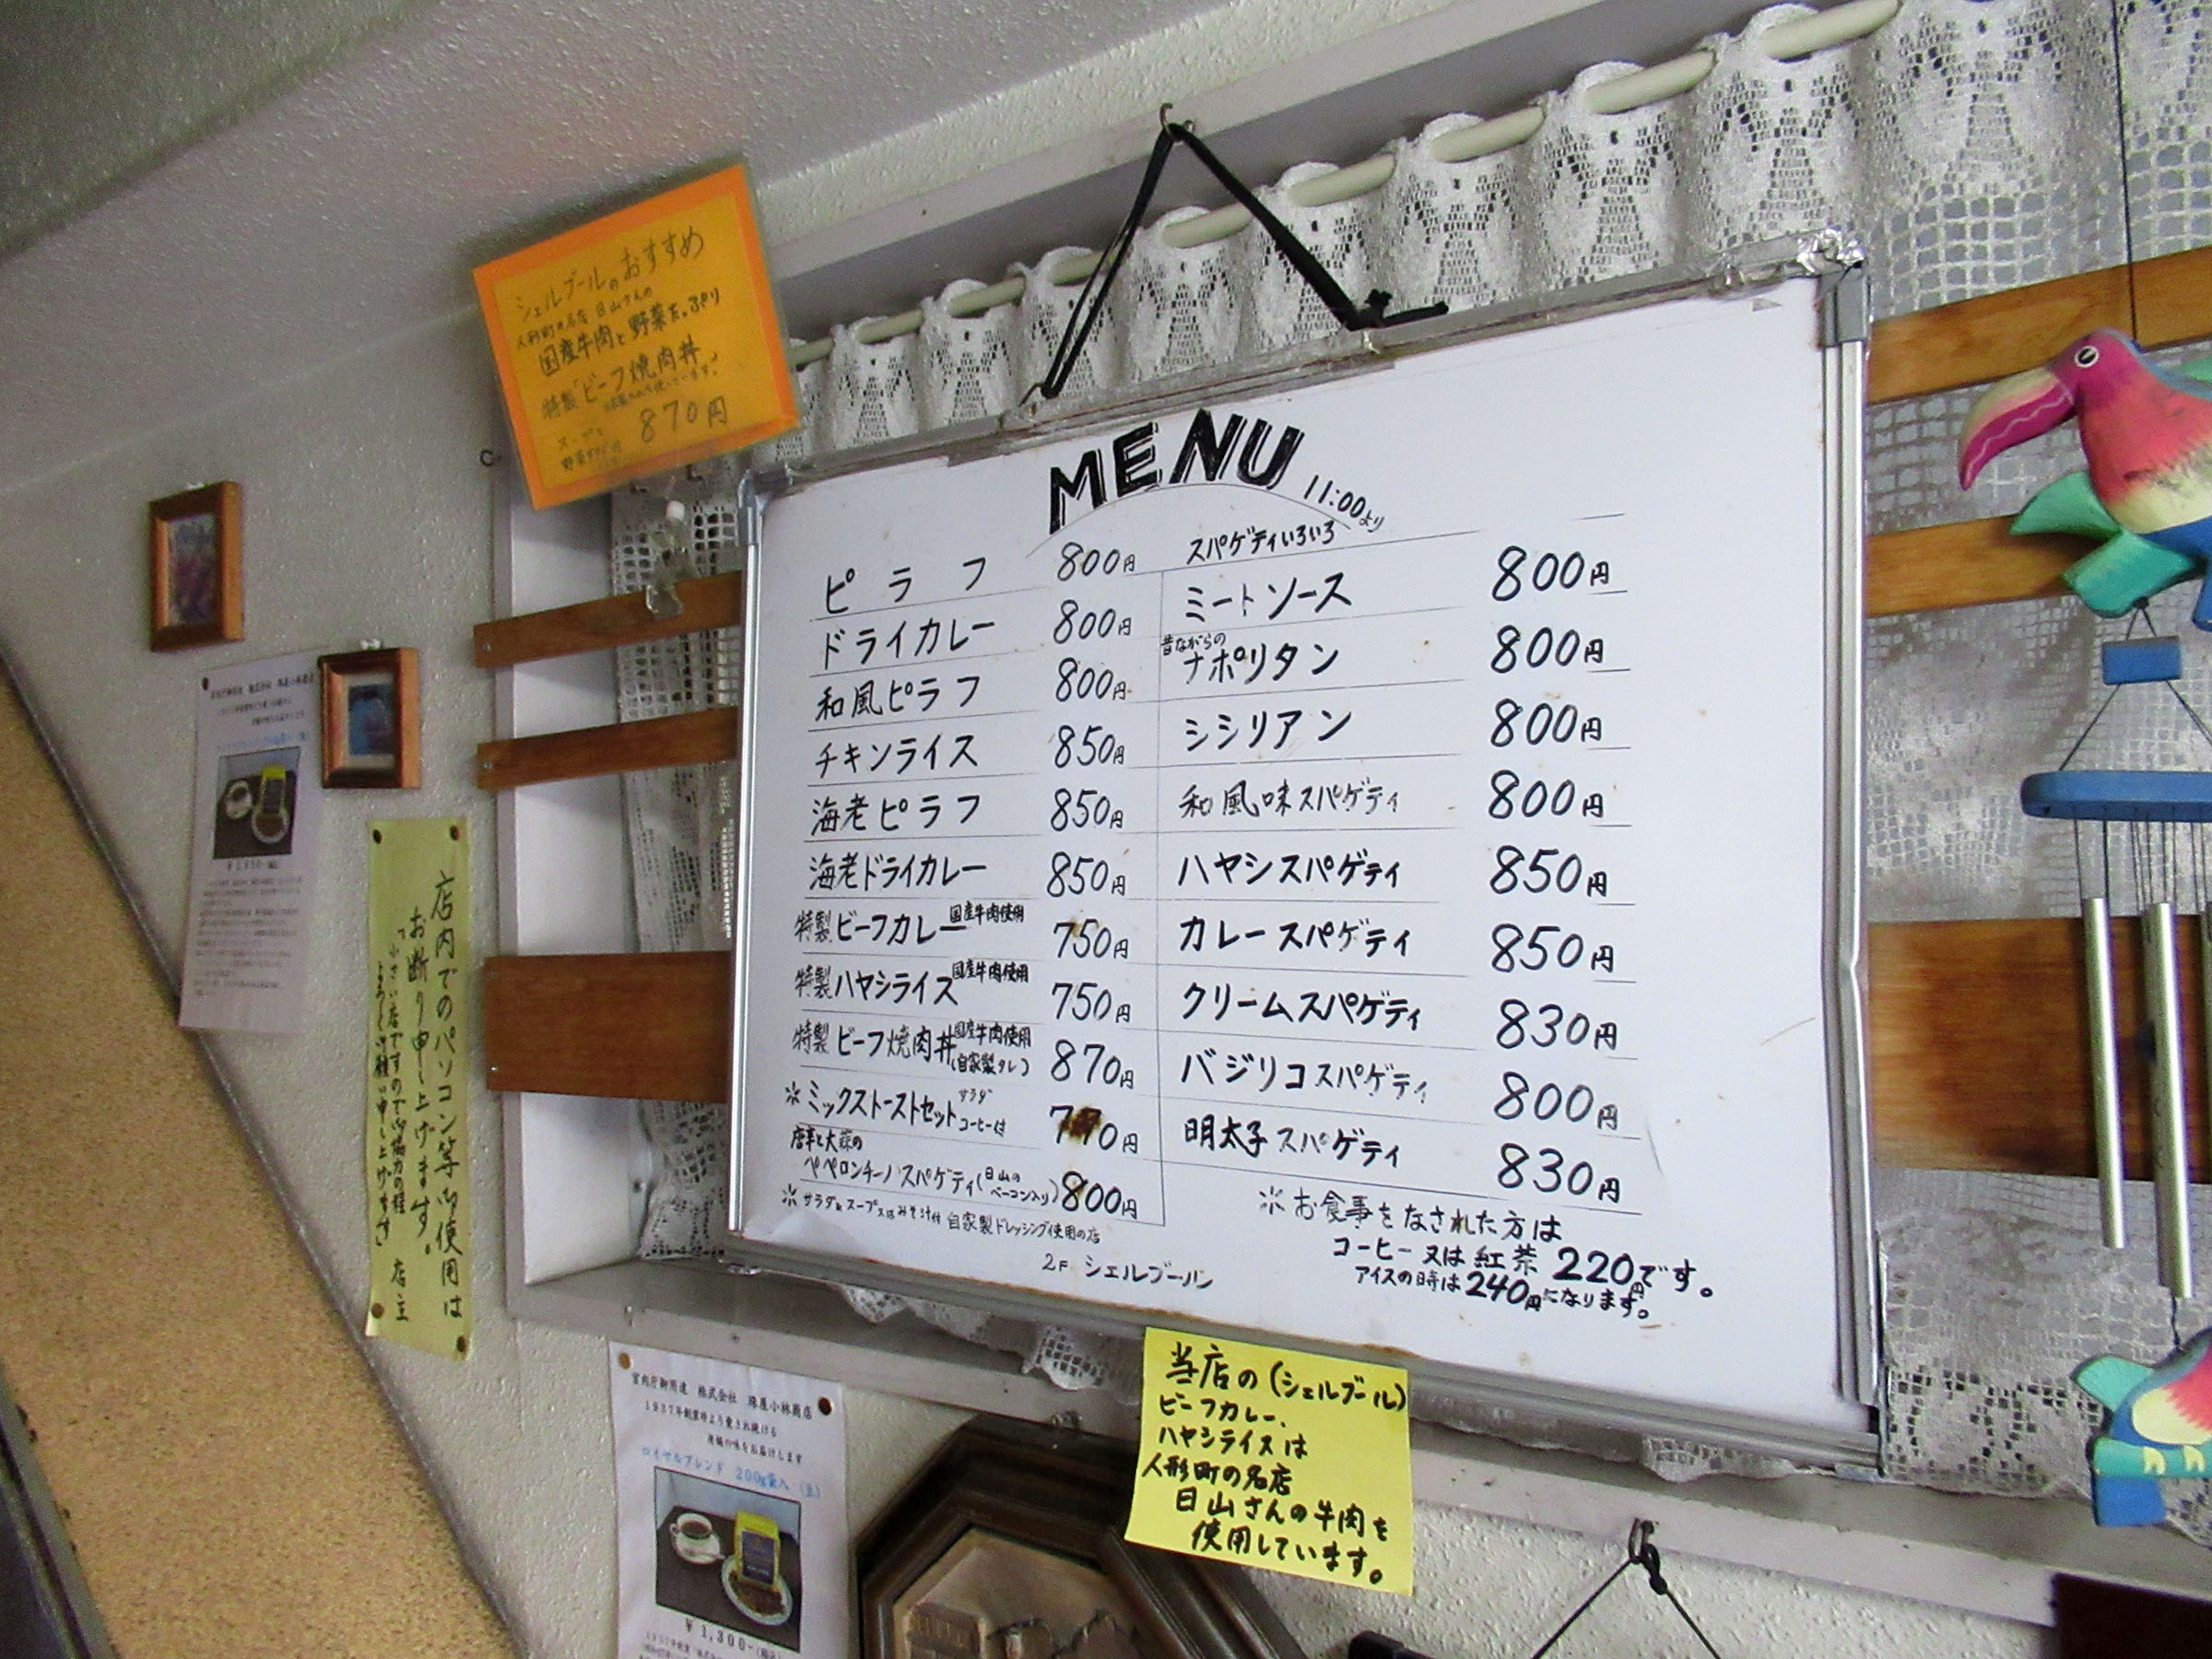 シェルブールのおすすめ
人形町の名店 日山さんの
国産牛肉と野菜たっぷり
特製「ビーフ焼肉丼」
870円
MENU 11:00より
ピラフ 800円
ドライカレー 800円
和風ピラフ 800円
チキンライス 850円
海老ピラフ 850円
海老ドライカレー 850円
特製ビーフカレー 国産牛肉使用 750円
特製ハヤシライス 国産牛肉使用 750円
特製ビーフ焼肉丼 国産牛肉使用 (自家製タレ) 870円
※ミックストーストセット サラダ コーヒー付 円
ペペロンチーノスパゲティ(日山のベーコン入り) 800円
※サラダ スープ又はみそ汁付 自家製ドレッシング使用の店
2F シェルブール
スパゲティいろいろ
ミートソース 800円
昔ながらの
ナポリタン 800円
シシリアン 800円
和風味スパゲティ 800円
ハヤシスパゲティ 850円
カレースパゲティ 850円
クリームスパゲティ 830円
バジリコスパゲティ 800円
明太子スパゲティ 830円
※お食事をなされた方は
コーヒー又は紅茶220円です。
アイスの時は240円になります。
当店の(シェルブール)
ビーフカレー、
ハヤシライスは
人形町の名店
日山さんの牛肉を
使用しています。
店内でのパソコン等御使用は
お断り申し上げます。
小さい店ですので御協力の程
よろしく御願い申し上げます
店主
宮内庁御用達 株式会社 小林商店
1937年創業時より愛され続ける
老舗の味をお届けします
ロイヤルブレンド 200g袋入 (豆)
¥1,300-(税込)